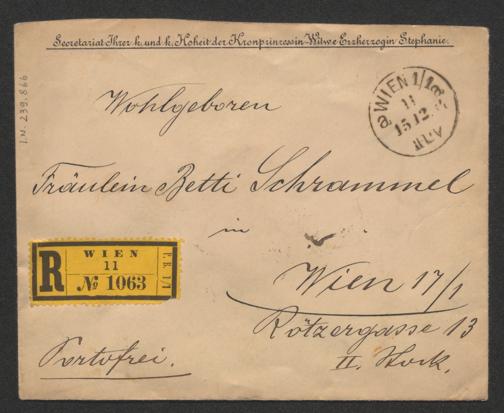 Secretariat Ihrer k. und k. Hoheit der Kronprinzessin-Witwe Erzherzogin Stephanie.
I.N. 239.866
WIEN 1/1
11
15.12.
Wohlgeboren
Fräulein Betti Schrammel
in
Wien 17/1
Rötzergasse 13
II. Stock.
R
WIEN
11
No 1063
P. B. 1/1
Portofrei.